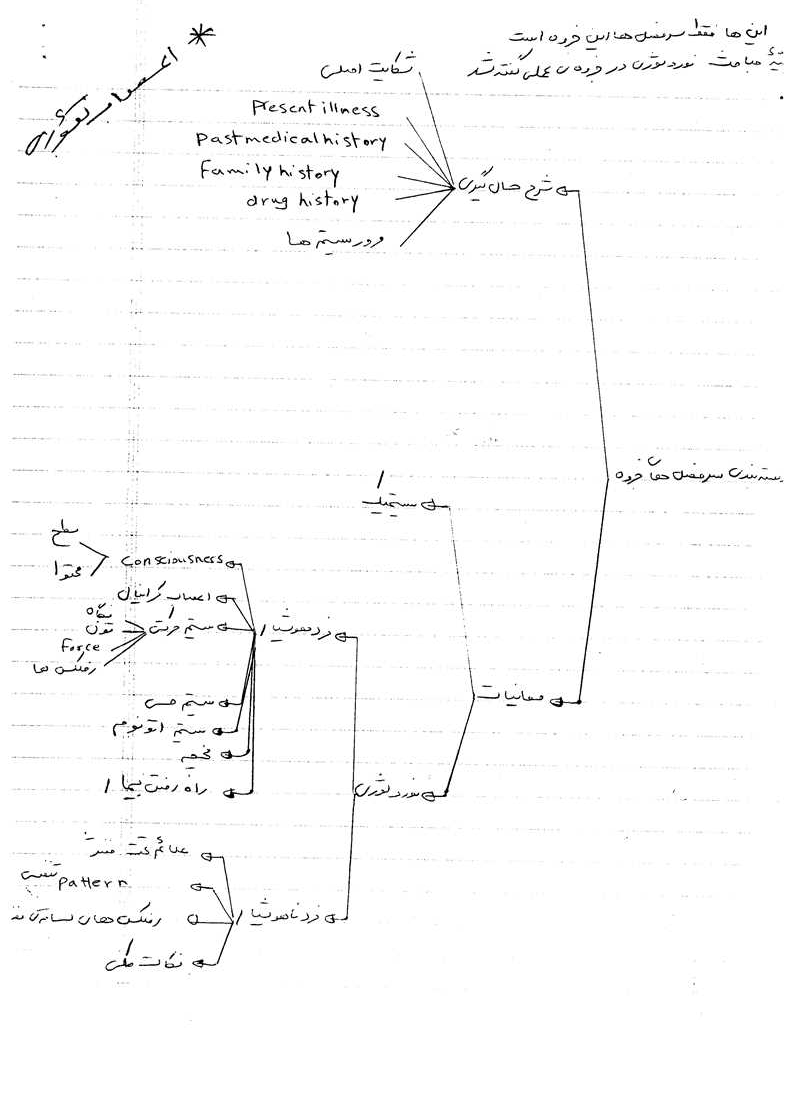 این ها فقط سرفصل ها این جزوه است
بقیهٔ مباحث نورولوژی در جزوه ی عملی گفته شد
* اعصاب تئوری
شکایت اصلی
Present illness
Past medical history
Family history
drug history
مرور سیستم ها
شرح حال گیری
دسته بندی سرفصل های جزوه
سیستمیک
Consciousness
سطح
محتوا
اعصاب کرانیال
سیستم حرکتی
نگاه
تون
Force
رفلکس ها
فرد هوشیار
سیستم حسی
سیستم اتونوم
مخچه
راه رفتن بیمار
معاینات
نورولوژی
علائم تحت
pattern تنفسی
فرد ناهوشیار
رفلکس های ساقه ی
نکات